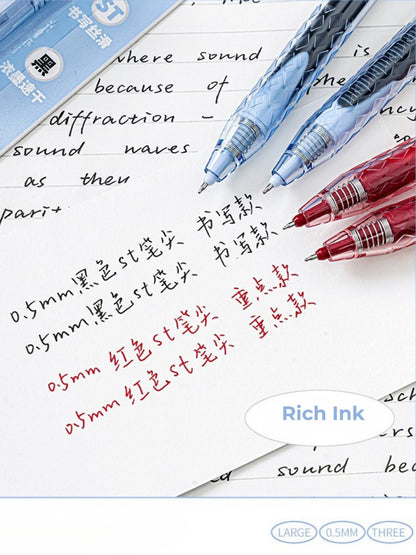 ST
书写丝滑
黑
浓墨速干
where sound is
because of the
diffraction -
sound waves
as then
0.5mm黑色st笔尖 书写款
0.5mm黑色st笔尖 书写款
0.5mm 红色st笔尖 重点款
0.5mm 红色st笔尖 重点款
Rich Ink
sound bec
LARGE 0.5MM THREE